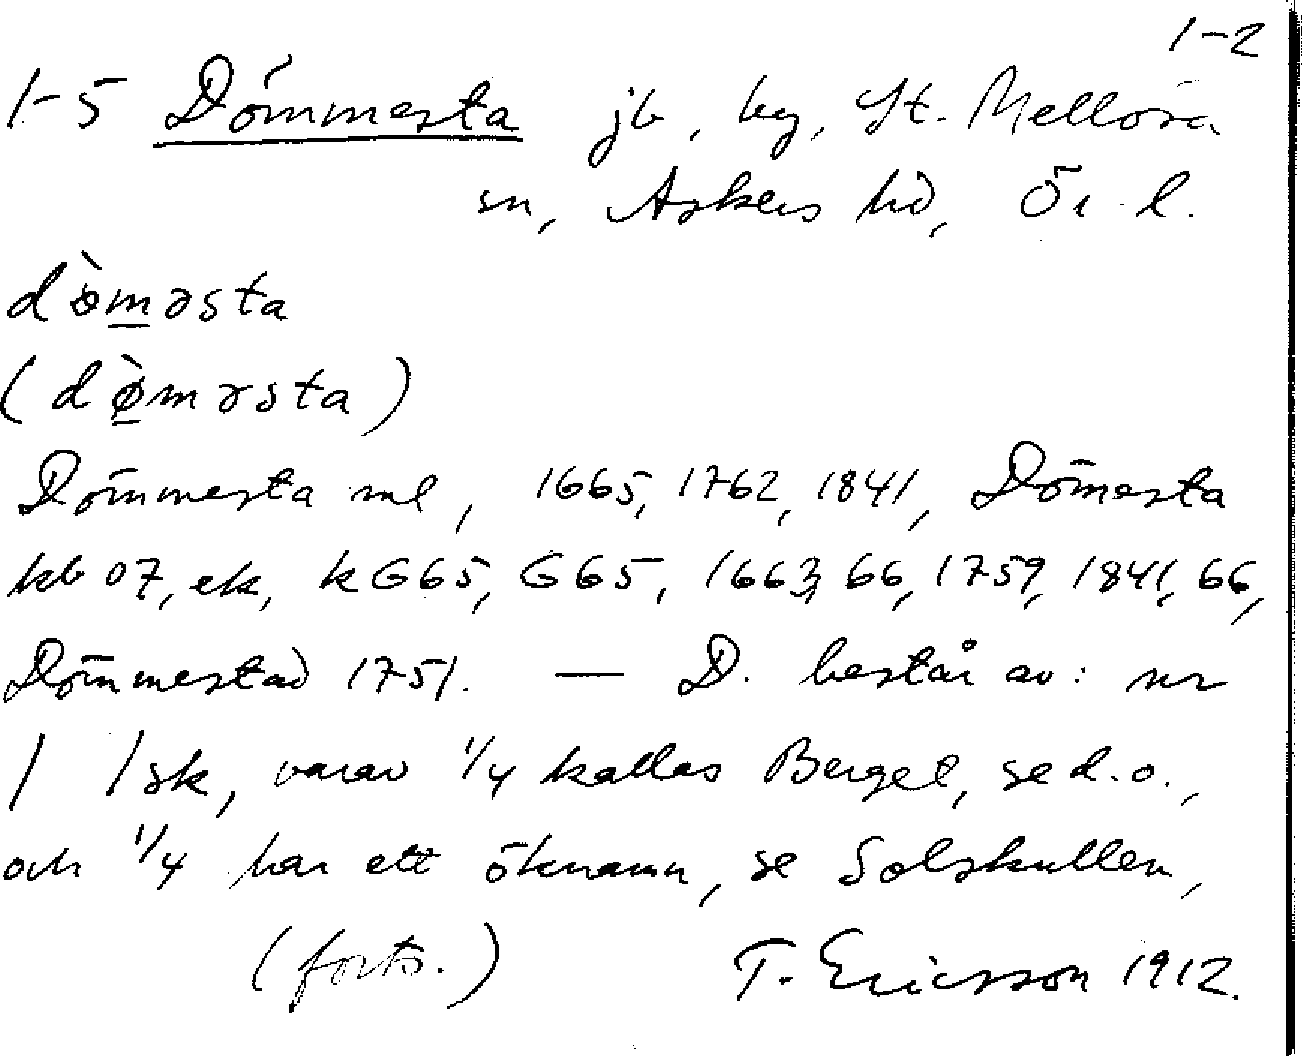 1-2
1-5 Dömmesta jb, by, St. Mellösa
sn, Askers hd, Ör. l.
dø̀m̲əsta
(dø̲̀məsta)
Dömmesta ml, 1665, 1762, 1841, Dömesta
kb 07, ek, k G65, G65, 1663, 66, 1759, 1841, 66,
Dömmestad 1751. — D. består av: nr
1 1 sk, varav 1/4 kallas Berget, se d.o.,
och 1/4 har ett öknamn, se Solskullen,
(forts.) T. Ericsson 1912.